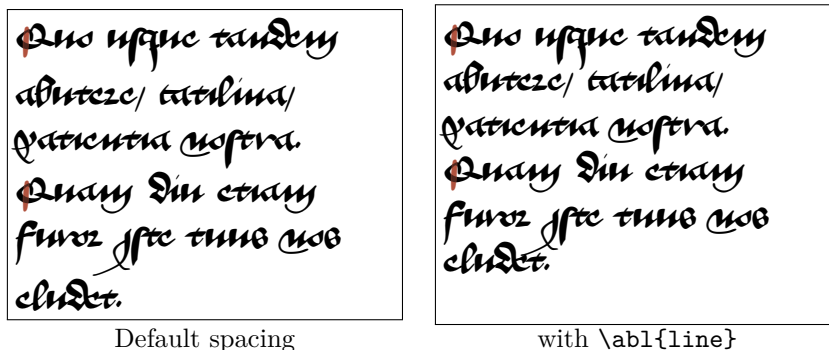 Quo usque tandem
abutere/ catilina/
patientia nostra.
Quam diu etiam
furor jste tuus nos
eludet.
Default spacing
Quo usque tandem
abutere/ catilina/
patientia nostra.
Quam diu etiam
furor jste tuus nos
eludet.
with \abl{line}